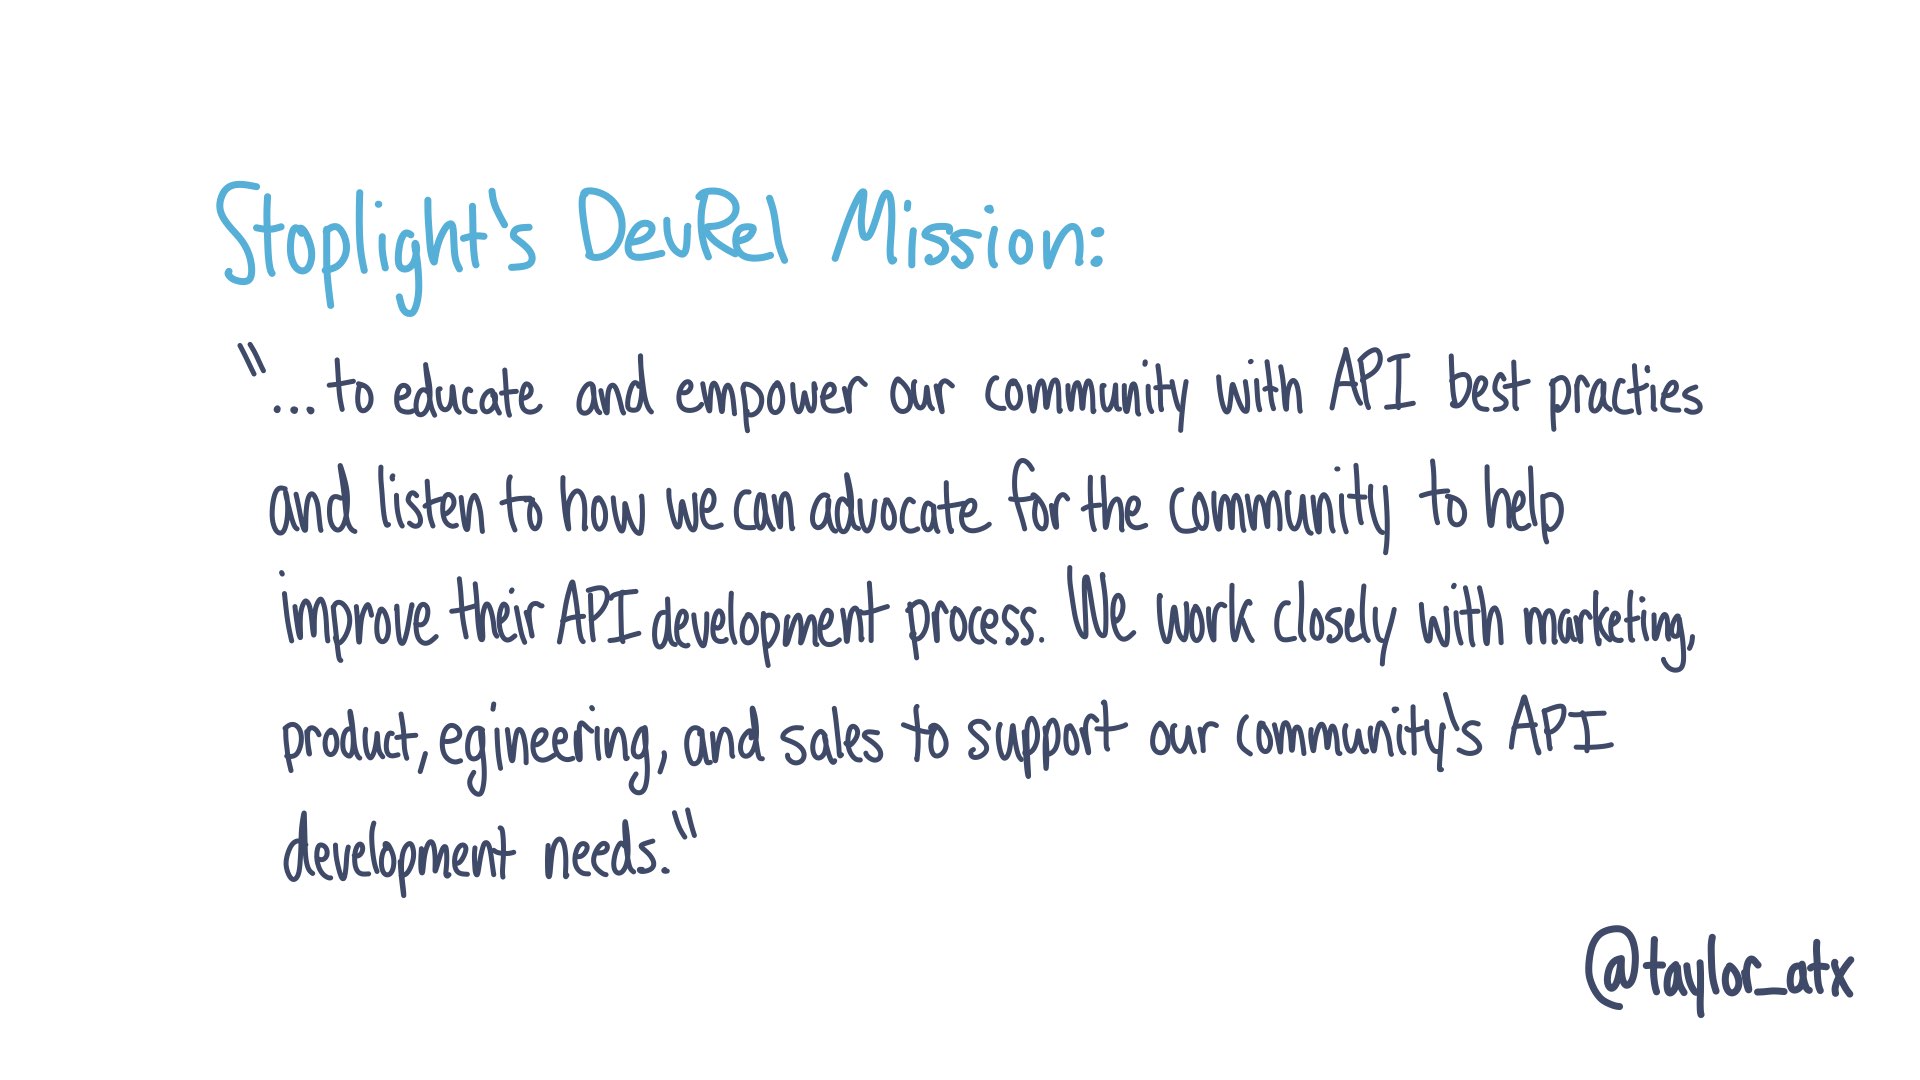 Stoplight's DevRel Mission:
"...to educate and empower our community with API best practies
and listen to how we can advocate for the community to help
improve their API development process. We work closely with marketing,
product, egineering, and sales to support our community's API
development needs."
@taylor_atx